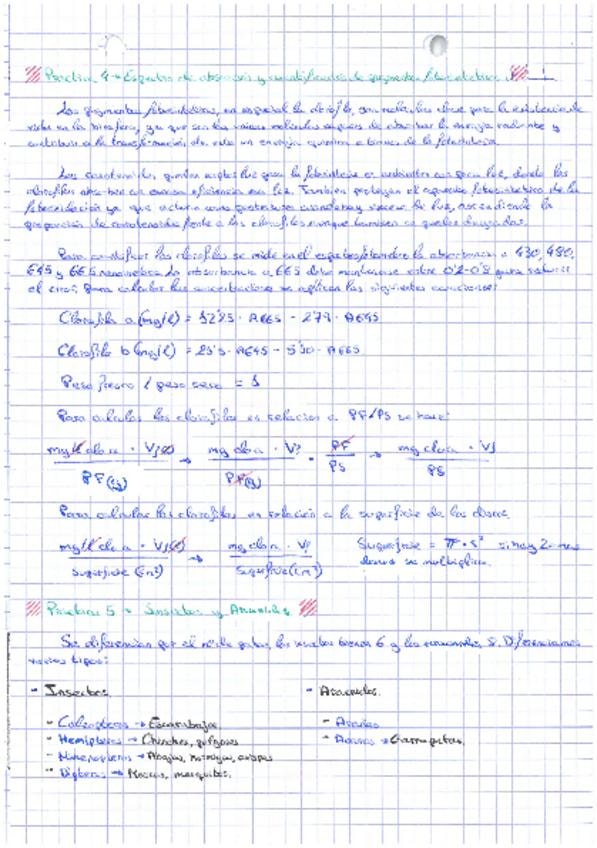 Práctica 4 → Espectro de absorción y cuantificación de pigmentos fotosintéticos 1
Los pigmentos fotosintéticos, en especial la clorofila, son moléculas clave para la existencia de
vida en la biosfera, ya que son las únicas moléculas capaces de absorber la energía radiante y
contribuir a la transformación de esta en energía química a través de la fotosíntesis.
Los carotenoides, pueden captar luz para la fotosíntesis en ambientes con poca luz, donde las
clorofilas absorben con escasa eficiencia esa luz. También protegen el aparato fotosintético de la
fotooxidación ya que actúan como protectores y exceso de luz, ascendiendo la
proporción de carotenoides frente a las clorofilas aunque también se queden dañadas.
Para cuantificar las clorofilas se mide en el espectrofotómetro la absorbancia a 430, 480,
645 y 665 nanómetros. La absorbancia a 665 debe mantenerse entre 0'2-0'8 para reducir
el error. Para calcular las concentraciones se aplican las siguientes ecuaciones:
Clorofila a (mg/l) = 12'25 · A665 - 2'79 · A645
Clorofila b (mg/l) = 21'5 · A645 - 5'10 · A665
Peso fresco / peso seco = 1
Para calcular las clorofilas en relación a PF/PS se hace:
mg/l clo a · Vf(l) → mg clo a · Vf · PF → mg clo a · Vf
PF(g) PF(g) PS PS
Para calcular las clorofilas en relación a la superficie de los discos.
mg/l clo a · Vf(l) → mg clo a · Vf Superficie = π · r² si hay 2 o más
superficie (cm²) superficie (cm²) discos se multiplica.
Práctica 5 → Insectos y Arácnidos
Se diferencian por el nº de patas, los insectos tienen 6 y los arácnidos, 8. Diferenciamos
varios tipos:
- Insectos. - Arácnidos.
- Coleópteros → Escarabajos - Arañas
- Hemípteros → Chinches, pulgones - Ácaros → Garrapatas.
- Himenópteros → Abejas, hormigas, avispas
- Dípteros → Moscas, mosquitos.